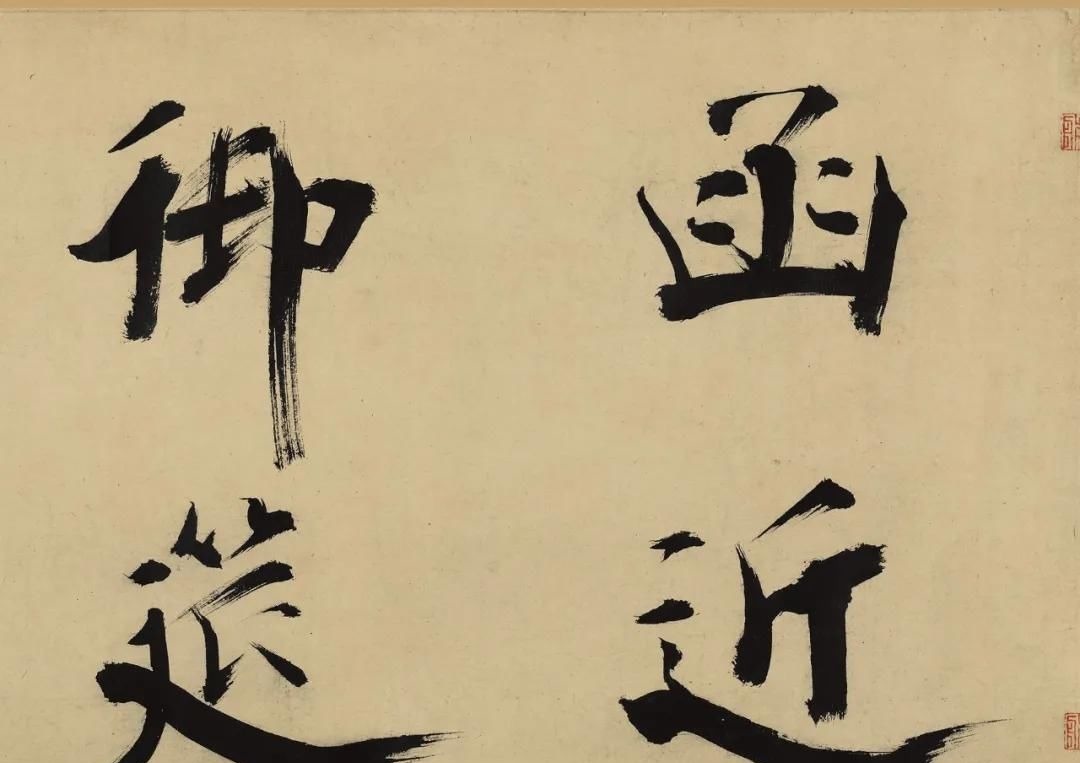 函近
御筵